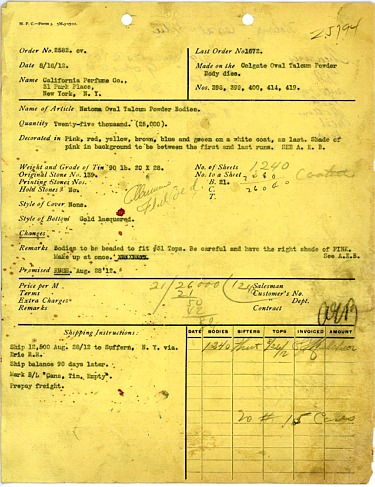 25794
Order No. 2582. cv.
Last Order No. 1672.
Date 8/16/12.
Made on the Colgate Oval Talcum Powder Body dies.
Name California Perfume Co.,
31 Park Place,
New York, N. Y.
Nos. 398, 399, 400, 414, 419.
Name of Article Natoma Oval Talcum Powder Bodies.
Quantity Twenty-five thousand. (25,000).
Decorated in Pink, red, yellow, brown, blue and green on a white coat, as last. Shade of
pink in background to be between the first and last runs. SEE A. E. B.
Weight and Grade of Tin 90 lb. 20 X 28.
No. of Sheets 1240
Original Stone No. 139.
No. to a Sheet
Coated
Printing Stones Nos.
B. 21.
Hold Stones? No.
C.
T.
Style of Cover None.
Style of Bottom Gold lacquered.
Changes
Remarks Bodies to be beaded to fit #51 Tops. Be careful and have the right shade of PINK.
Make up at once.
See A.E.B.
Promised Aug. 28'12.
Price per M
21/26000 (124
Salesman
Terms
21
Customer's No.
Extra Charges
50
Dept.
Remarks
42
Contract
80
AEB
Shipping Instructions:
DATE BODIES SIFTERS TOPS INVOICED AMOUNT
Ship 12,500 Aug. 28/12 to Suffern, N. Y. via.
Erie R.R.
1240
Ship balance 90 days later.
Mark B/L "Cans, Tin, Empty".
Prepay freight.
20 # 15 Cases